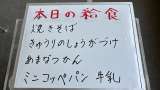 本日の給食
焼きそば
きゅうりのしょうがづけ
あまなつかん
ミニコッペパン 牛乳